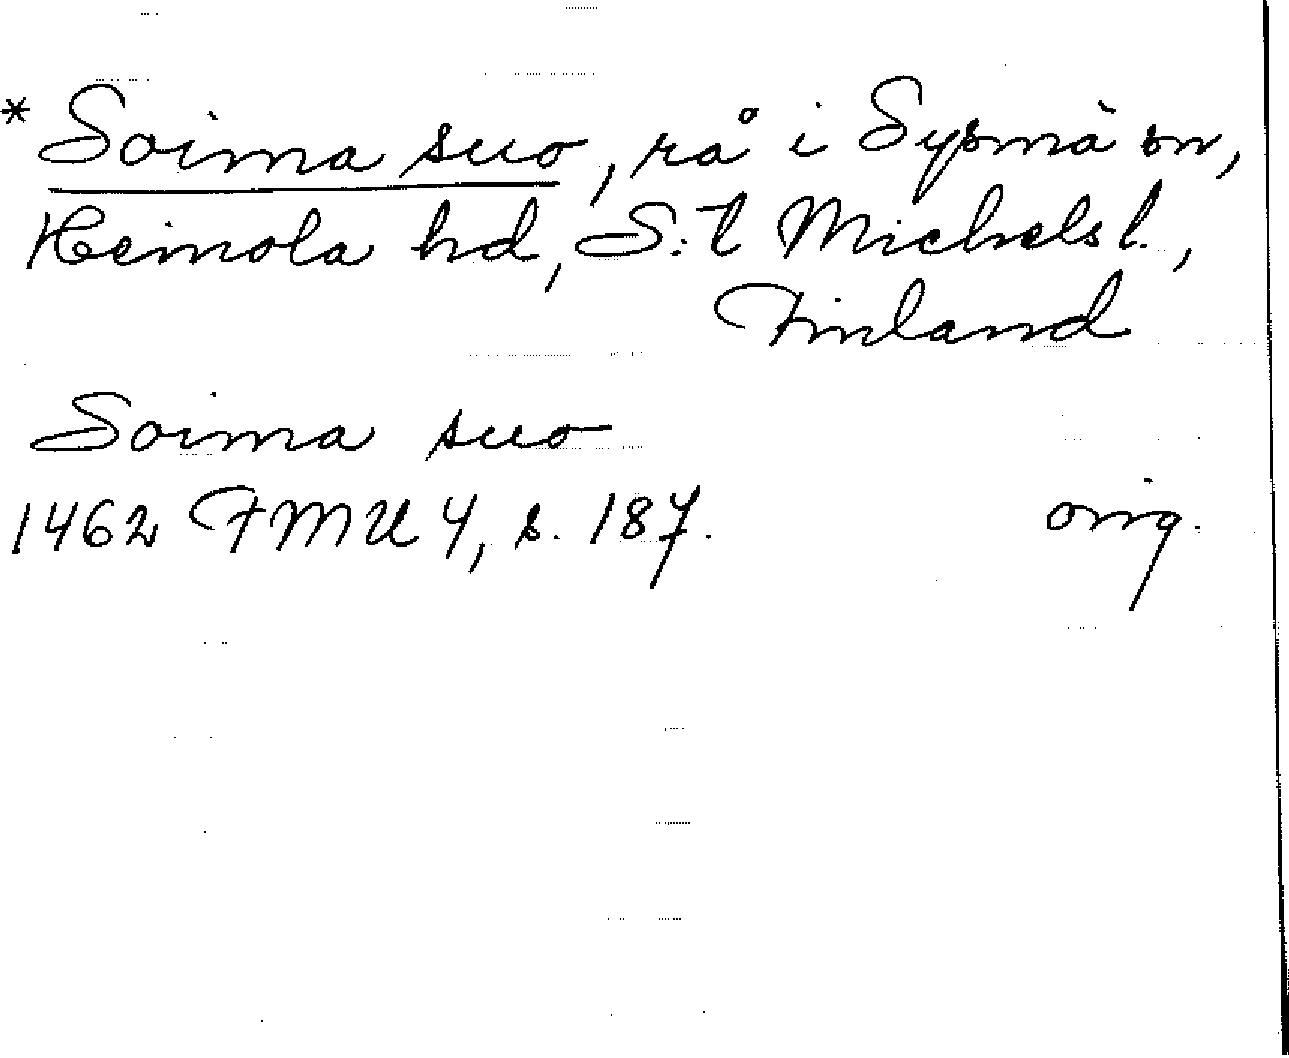 * Soima suo, rå i Sysmä sn,
Heinola hd, S:t Michels l.,
Finland
Soima suo
1462 FMU 4, s. 187. orig.